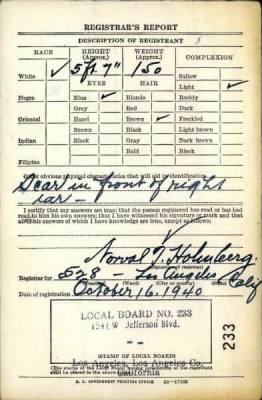 REGISTRAR'S REPORT
DESCRIPTION OF REGISTRANT
RACE HEIGHT (Approx.) WEIGHT (Approx.) COMPLEXION
White ✓ 5 ft. 7" 150 Sallow
EYES HAIR Light ✓
Negro Blue ✓ Blonde Ruddy
Gray Red Dark
Oriental Hazel Brown ✓ Freckled
Brown Black Light brown
Indian Black Gray Dark brown
Bald Black
Filipino
Other obvious physical characteristics that will aid in identification
Scar in front of right
ear -
I certify that my answers are true; that the person registered has read or has had
read to him his own answers; that I have witnessed his signature or mark and that all
of his answers of which I have knowledge are true, except as follows:
Norval T. Holmberg
Registrar for 528 - Los Angeles Calif
Date of registration October 16, 1940
LOCAL BOARD NO. 233
Jefferson Blvd.
233
STAMP OF LOCAL BOARD
Los Angeles, Los Angeles Co.
California
U. S. GOVERNMENT PRINTING OFFICE